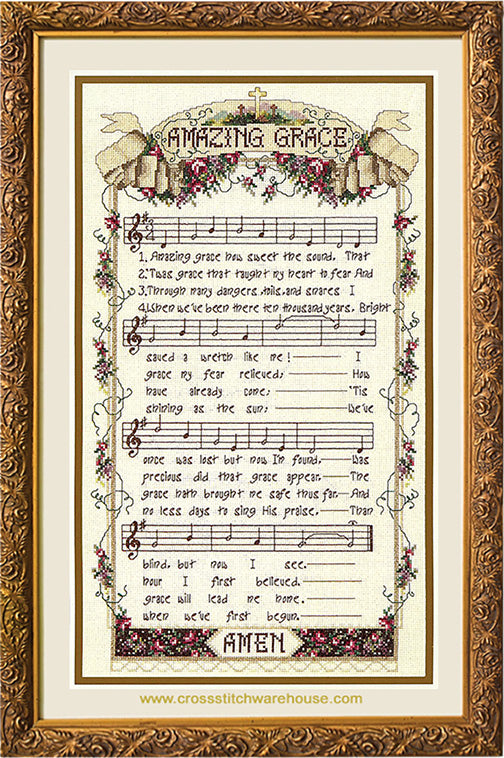 AMAZING GRACE
1. Amazing grace how sweet the sound, That
2. 'Twas grace that taught my heart to fear And
3. Through many dangers, toils, and snares I
4. When we've been there ten thousand years, Bright
saved a wretch like me! I
grace my fear relieved; How
have already come; 'Tis
shining as the sun; We've
once was lost but now I'm found, Was
precious did that grace appear, The
grace hath brought me safe thus far, And
no less days to sing His praise, Than
blind, but now I see.
hour I first believed.
grace will lead me home.
when we've first begun.
AMEN
www.crossstitchwarehouse.com